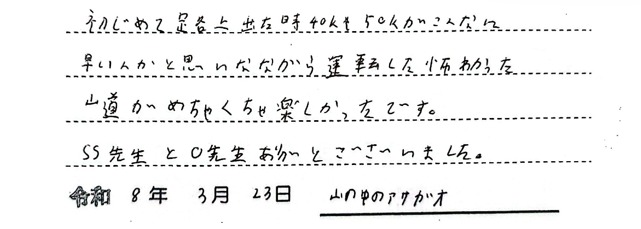 初じめて足各上出た時40kを50kがこんなに
早いんかと思いなながら運転した怖わかった
山道がめちゃくちゃ楽しかったです。
SS先生とO先生ありがとございました。
令和 8年 3月 23日 山の中のアサガオ